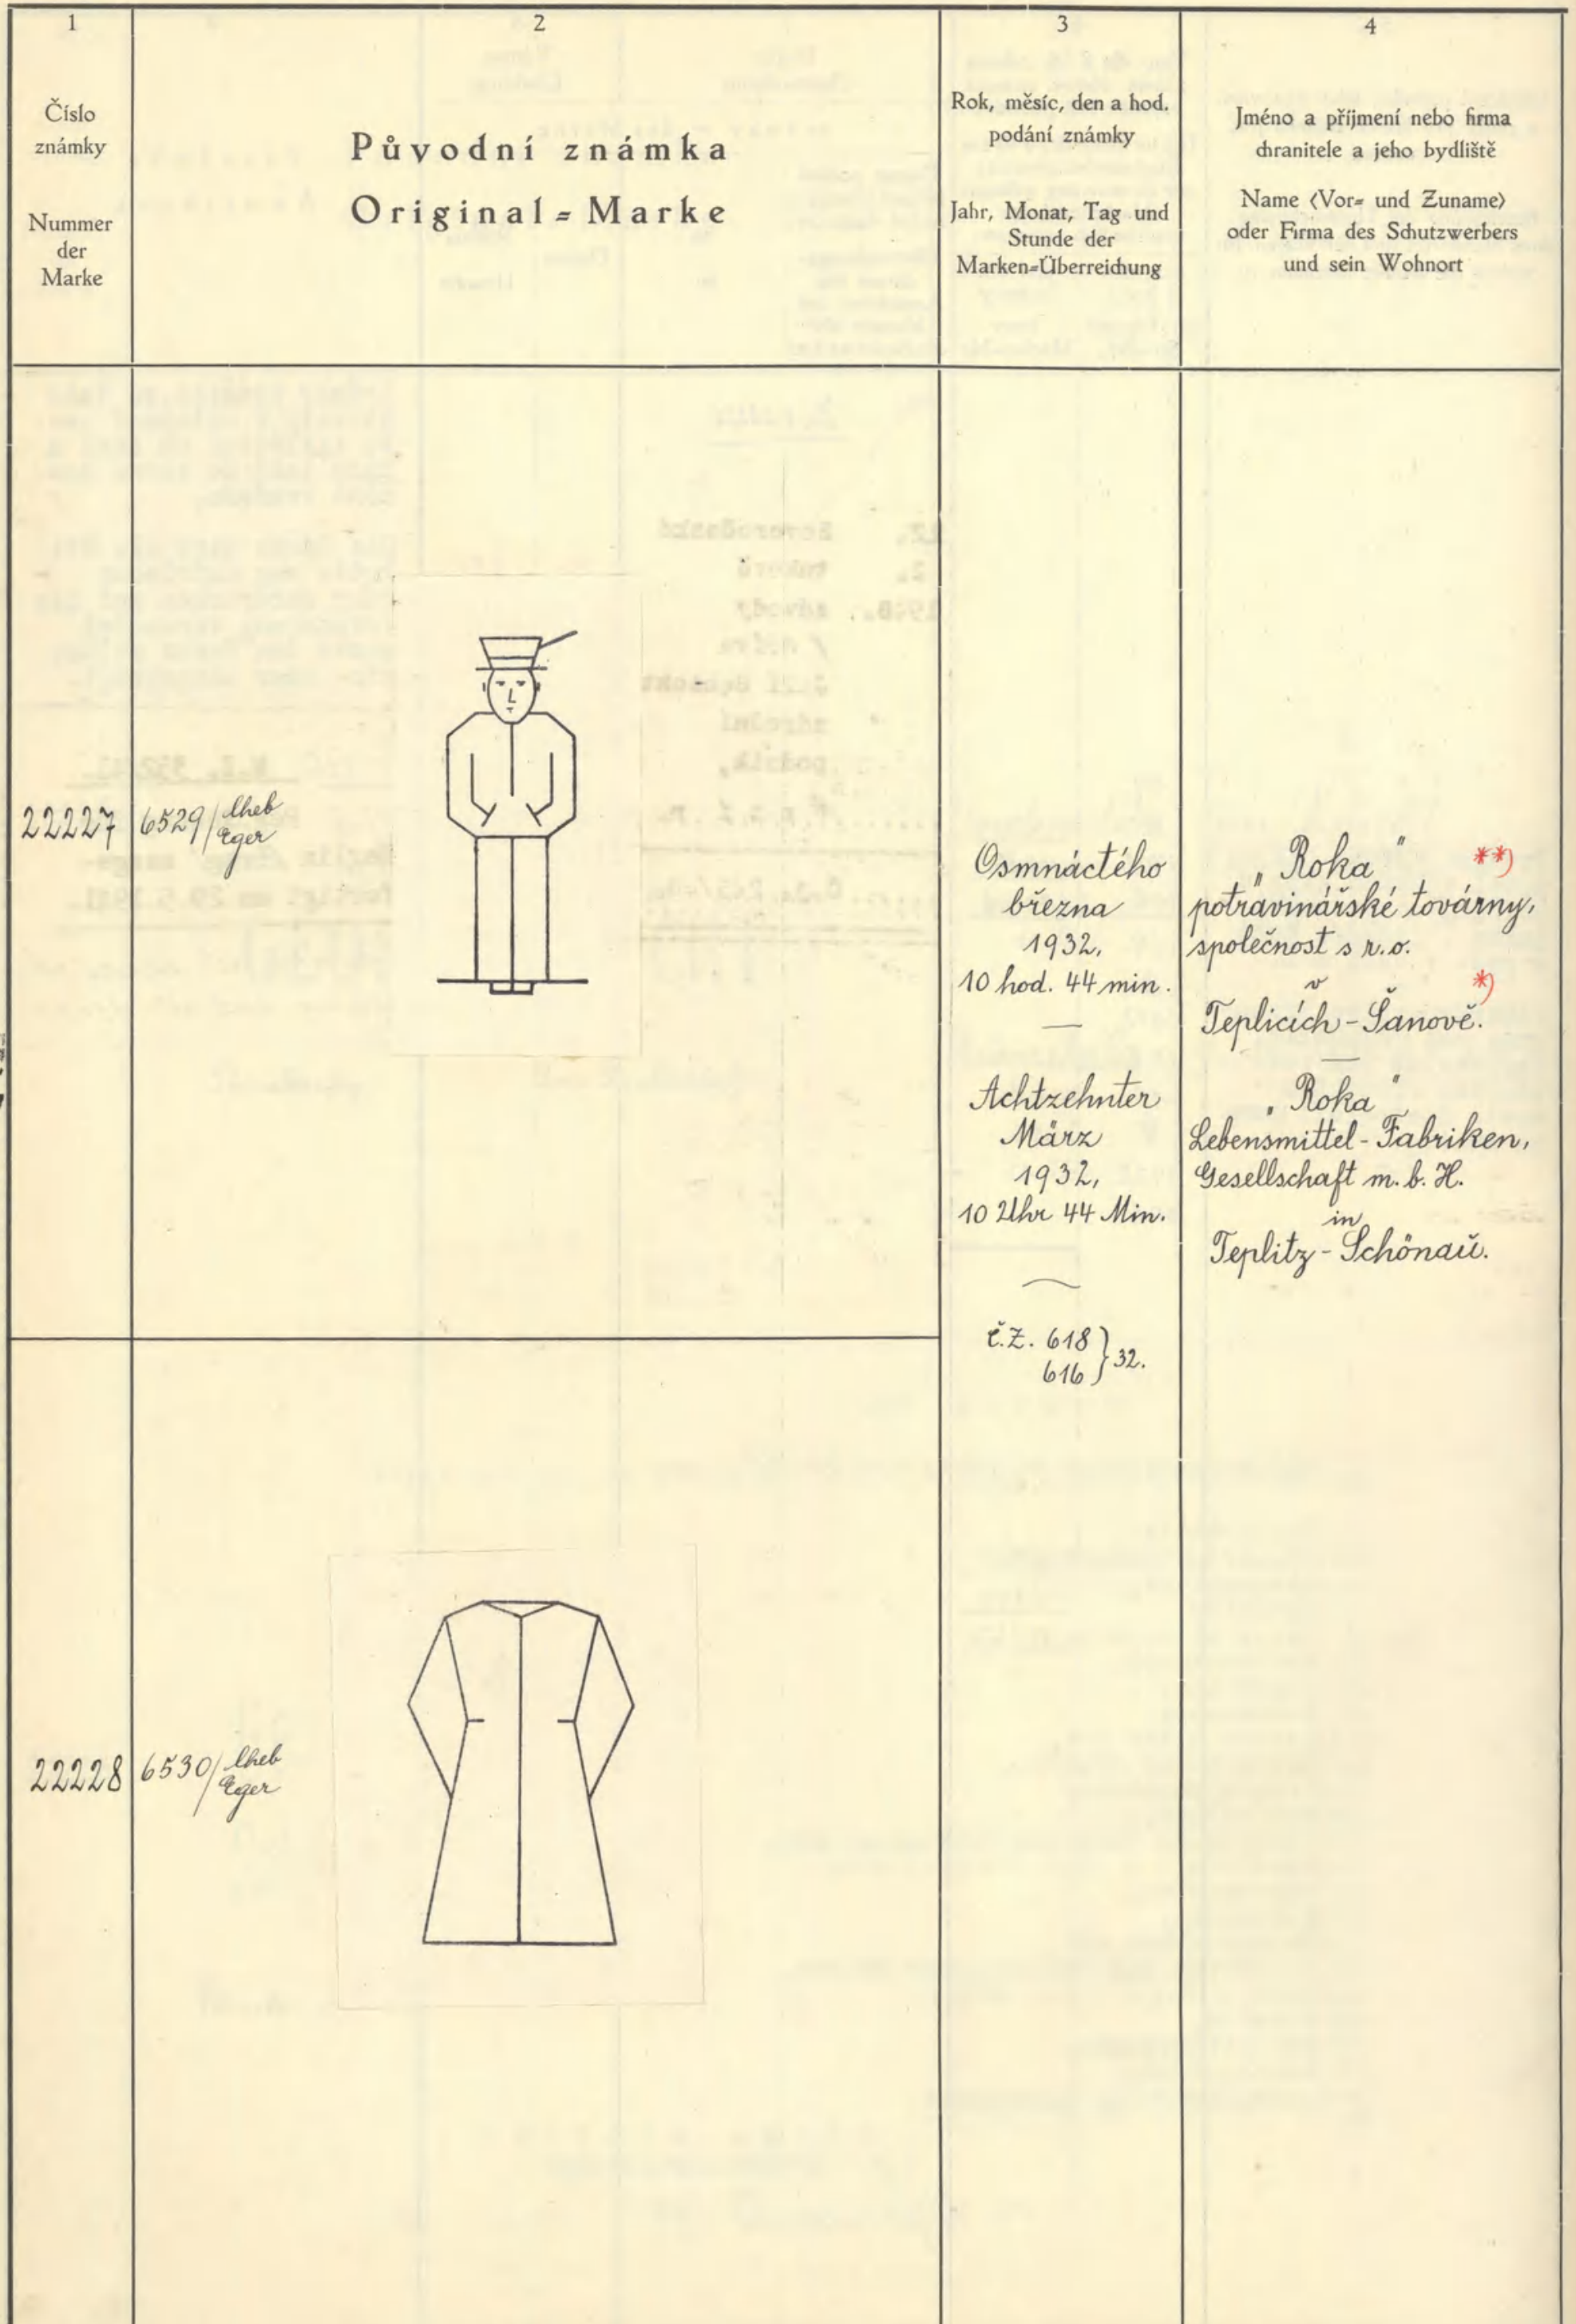 1
Číslo
známky
Nummer
der
Marke
2
Původní známka
Original=Marke
3
Rok, měsíc, den a hod.
podání známky
Jahr, Monat, Tag und
Stunde der
Marken=Überreichung
4
Jméno a příjmení nebo firma
chranitele a jeho bydliště
Name (Vor= und Zuname)
oder Firma des Schutzwerbers
und sein Wohnort
22227
6529/Cheb
Eger
Osmnáctého
března
1932,
10 hod. 44 min.
—
Achtzehnter
März
1932,
10 Uhr 44 Min.
č.Z. 618 } 32.
616
„Roka" **)
potravinářské továrny,
společnost s r.o.
v *)
Teplicích-Šanově.
—
„Roka"
Lebensmittel-Fabriken,
Gesellschaft m.b.H.
in
Teplitz-Schönau.
22228
6530/Cheb
Eger